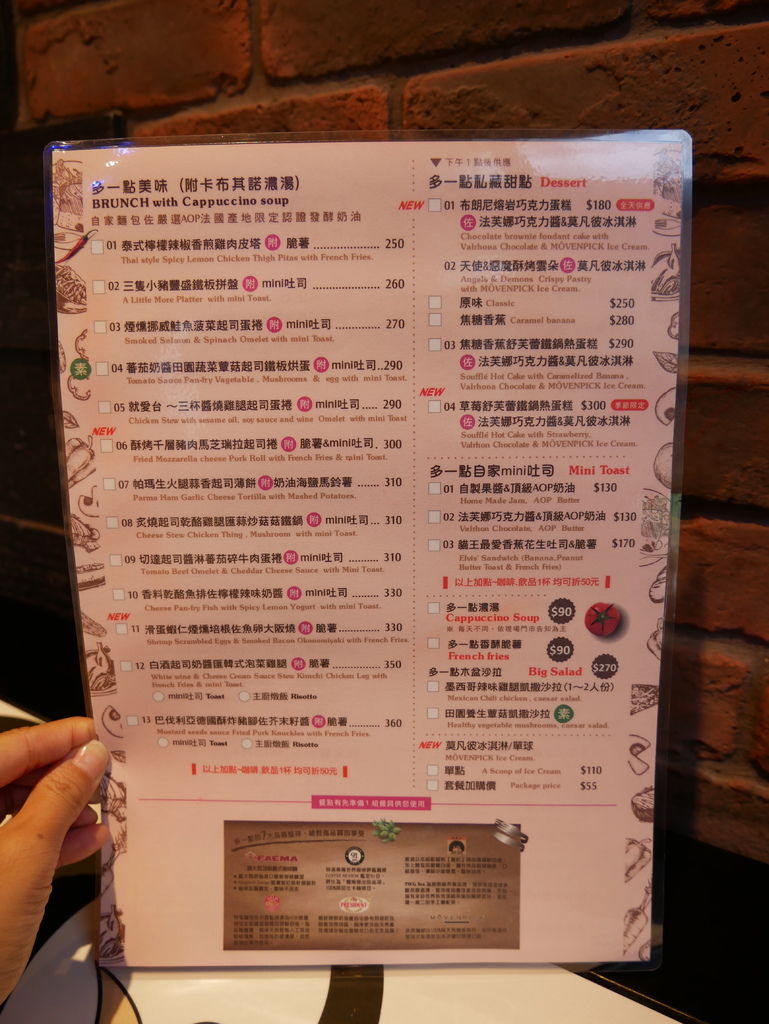 多一點美味 (附卡布其諾濃湯)
BRUNCH with Cappuccino soup
自家麵包佐嚴選AOP法國產地限定認證發酵奶油
01 泰式檸檬辣椒香煎雞肉皮塔 附 脆薯 .................. 250
Thai style Spicy Lemon Chicken Thigh Pitas with French Fries.
02 三隻小豬豐盛鐵板拼盤 附 mini吐司 .................. 260
A Little More Platter with mini Toast.
03 煙燻挪威鮭魚菠菜起司蛋捲 附 mini吐司 ............. 270
Smoked Salmon & Spinach Omelet with mini Toast.
素
04 蕃茄奶醬田園蔬菜蕈菇起司鐵板烘蛋 附 mini吐司..290
Tomato Sauce Pan-fry Vegetable , Mushrooms & egg with mini Toast.
05 就愛台 ～三杯醬燒雞腿起司蛋捲 附 mini吐司..... 290
Chicken Stew with sesame oil, soy sauce and wine Omelet with mini Toast
NEW
06 酥烤千層豬肉馬芝瑞拉起司捲 附 脆薯&mini吐司. 300
Fried Mozzarella cheese Pork Roll with French Fries & mini Toast.
07 帕瑪生火腿蒜香起司薄餅 附 奶油海鹽馬鈴薯 ....... 310
Parma Ham Garlic Cheese Tortilla with Mashed Potatoes.
08 炙燒起司乾酪雞腿匯蒜炒菇菇鐵鍋 附 mini吐司... 310
Cheese Stew Chicken Thing , Mushroom with mini Toast.
09 切達起司醬淋蕃茄碎牛肉蛋捲 附 mini吐司 .......... 310
Tomato Beef Omelet & Cheddar Cheese Sauce with Mini Toast.
10 香料乾酪魚排佐檸檬辣味奶醬 附 mini吐司 .......... 330
Cheese Pan-fry Fish with Spicy Lemon Yogurt with mini Toast.
NEW
11 滑蛋蝦仁煙燻培根佐魚卵大阪燒 附 脆薯............. 330
Shrimp Scrambled Eggs & Smoked Bacon Okonomiyaki with French Fries.
12 白酒起司奶醬匯韓式泡菜雞腿 附 脆薯................ 350
White wine & Cheese Cream Sauce Stew Kimchi Chicken Leg with
French Fries & mini Toast.
mini吐司 Toast 主廚燉飯 Risotto
13 巴伐利亞德國酥炸豬腳佐芥末籽醬 附 脆薯.......... 360
Mustard seeds sauce Fried Pork Knuckles with French Fries.
mini吐司 Toast 主廚燉飯 Risotto
以上加點~咖啡.飲品1杯 均可折50元
▼下午1點後供應
多一點私藏甜點 Dessert
NEW
01 布朗尼熔岩巧克力蛋糕 $180 全天供應
佐 法芙娜巧克力醬&莫凡彼冰淇淋
Chocolate brownie fondant cake with
Valrhona Chocolate & MÖVENPICK Ice Cream.
02 天使&惡魔酥烤雲朵 佐 莫凡彼冰淇淋
Angels & Demons Crispy Pastry
with MÖVENPICK Ice Cream.
原味 Classic $250
焦糖香蕉 Caramel banana $280
03 焦糖香蕉舒芙蕾鐵鍋熱蛋糕 $290
佐 法芙娜巧克力醬&莫凡彼冰淇淋
Soufflé Hot Cake with Caramelized Banana ,
Valrhona Chocolate & MÖVENPICK Ice Cream.
NEW
04 草莓舒芙蕾鐵鍋熱蛋糕 $300 季節限定
佐 法芙娜巧克力醬&莫凡彼冰淇淋
Soufflé Hot Cake with Strawberry,
Valrhon Chocolate & MÖVENPICK Ice Cream.
多一點自家mini吐司 Mini Toast
01 自製果醬&頂級AOP奶油 $130
Home Made Jam, AOP Butter
02 法芙娜巧克力醬&頂級AOP奶油 $130
Valrhon Chocolate, AOP Butter
03 貓王最愛香蕉花生吐司&脆薯 $170
Elvis' Sandwich (Banana.Peanut
Butter Toast & French Fries)
以上加點~咖啡.飲品1杯 均可折50元
多一點濃湯
Cappuccino Soup $90
※ 每天不同，依現場門市告知為主
多一點香酥脆薯
French fries $90
多一點木盆沙拉 Big Salad $270
墨西哥辣味雞腿凱撒沙拉(1～2人份)
Mexican Chili chicken , caesar salad.
田園養生蕈菇凱撒沙拉 素
Healthy vegetable mushrooms, caesar salad.
NEW 莫凡彼冰淇淋/單球
MÖVENPICK Ice Cream.
單點 A Scoop of Ice Cream $110
套餐加購價 Package price $55
餐點有先準備1組餐具供您使用
FAEMA
PRESIDENT
MÖVENPICK